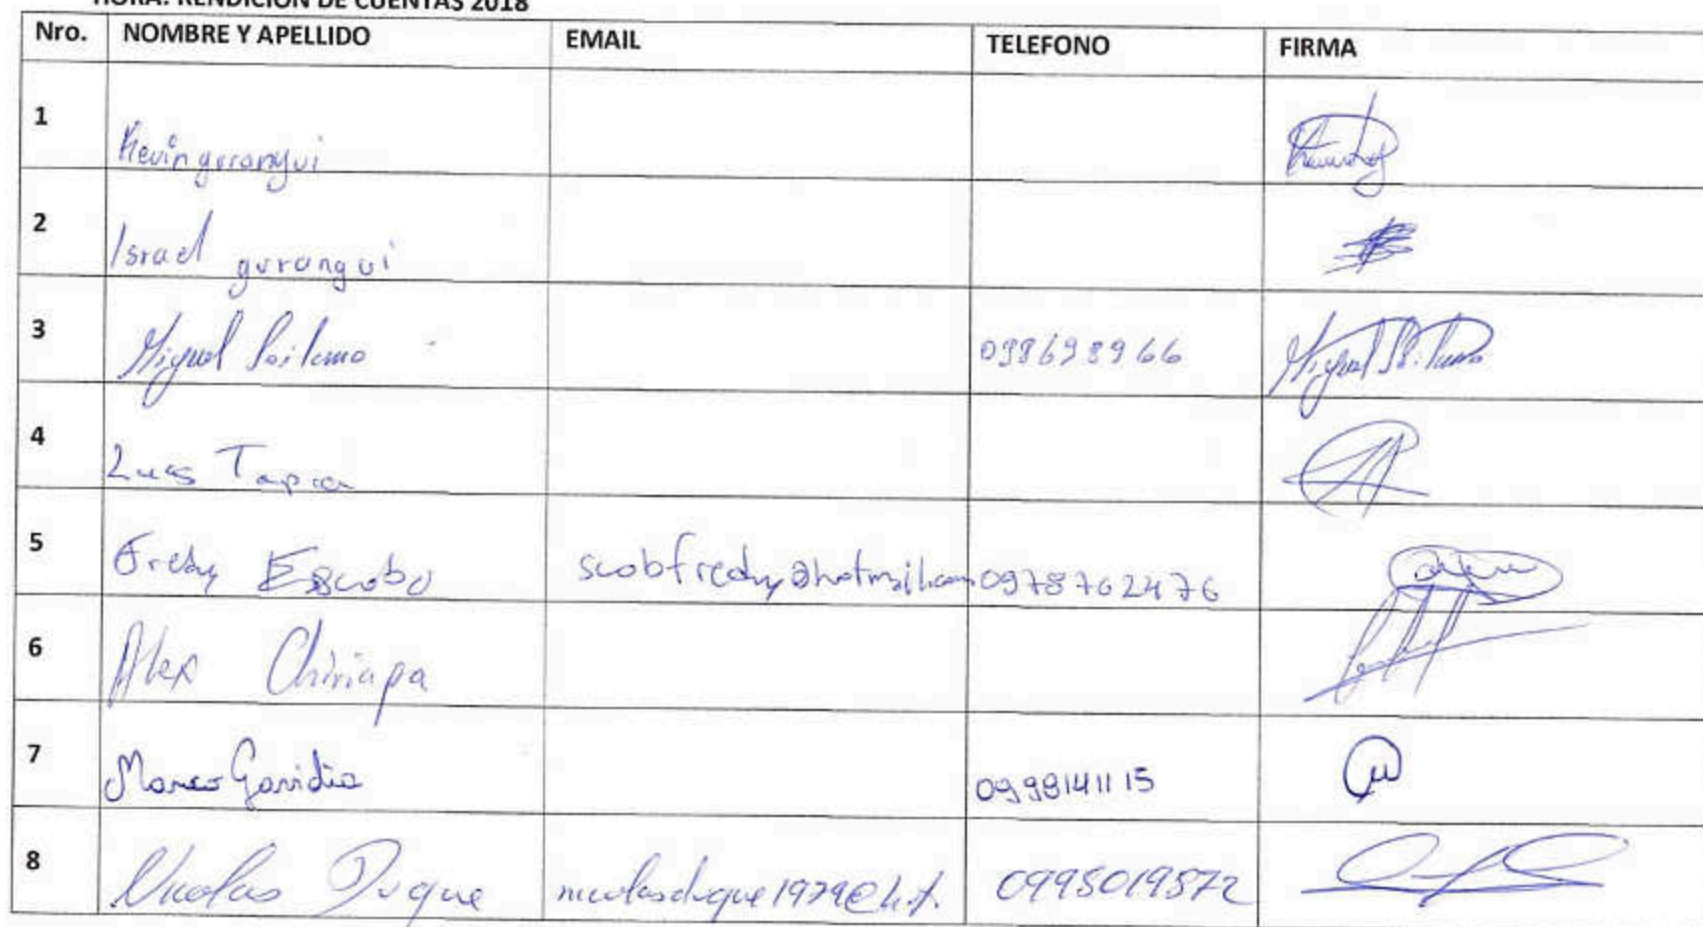 HORA: RENDICION DE CUENTAS 2018
Nro. NOMBRE Y APELLIDO EMAIL TELEFONO FIRMA
1 Kevin gurangui
2 Israel gurangui
3 Miguel 098698966 Miguel
4 Luis Tapia
5 Fredy Escobo scobfredy@hotmail.com 0978762476
6 Alex Chiriapa
7 Marco Gavidia 0998141115
8 Nicolas Duque nicolasduque1979@hot. 0995019572